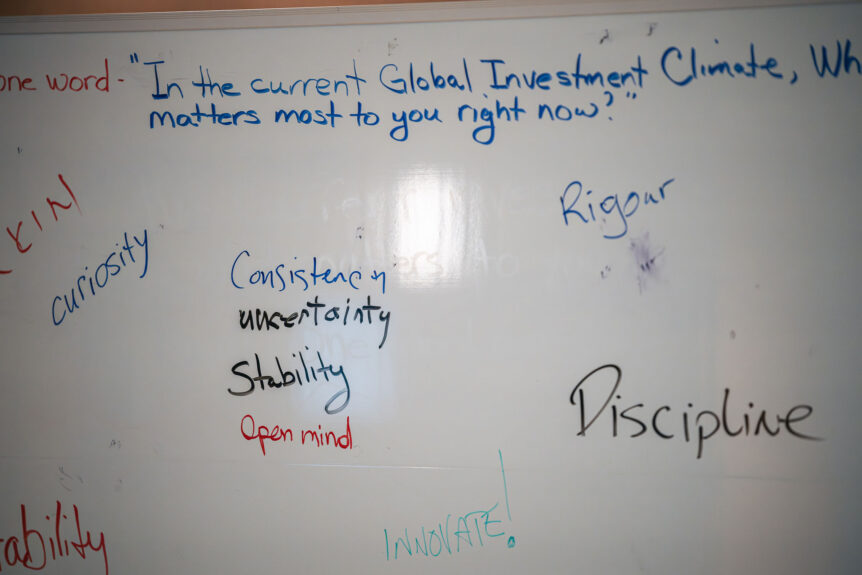 one word - "In the current Global Investment Climate, Wh
matters most to you right now?"
Rigour
curiosity
Consistency
uncertainty
Stability
Open mind
Discipline
ability
INNOVATE!